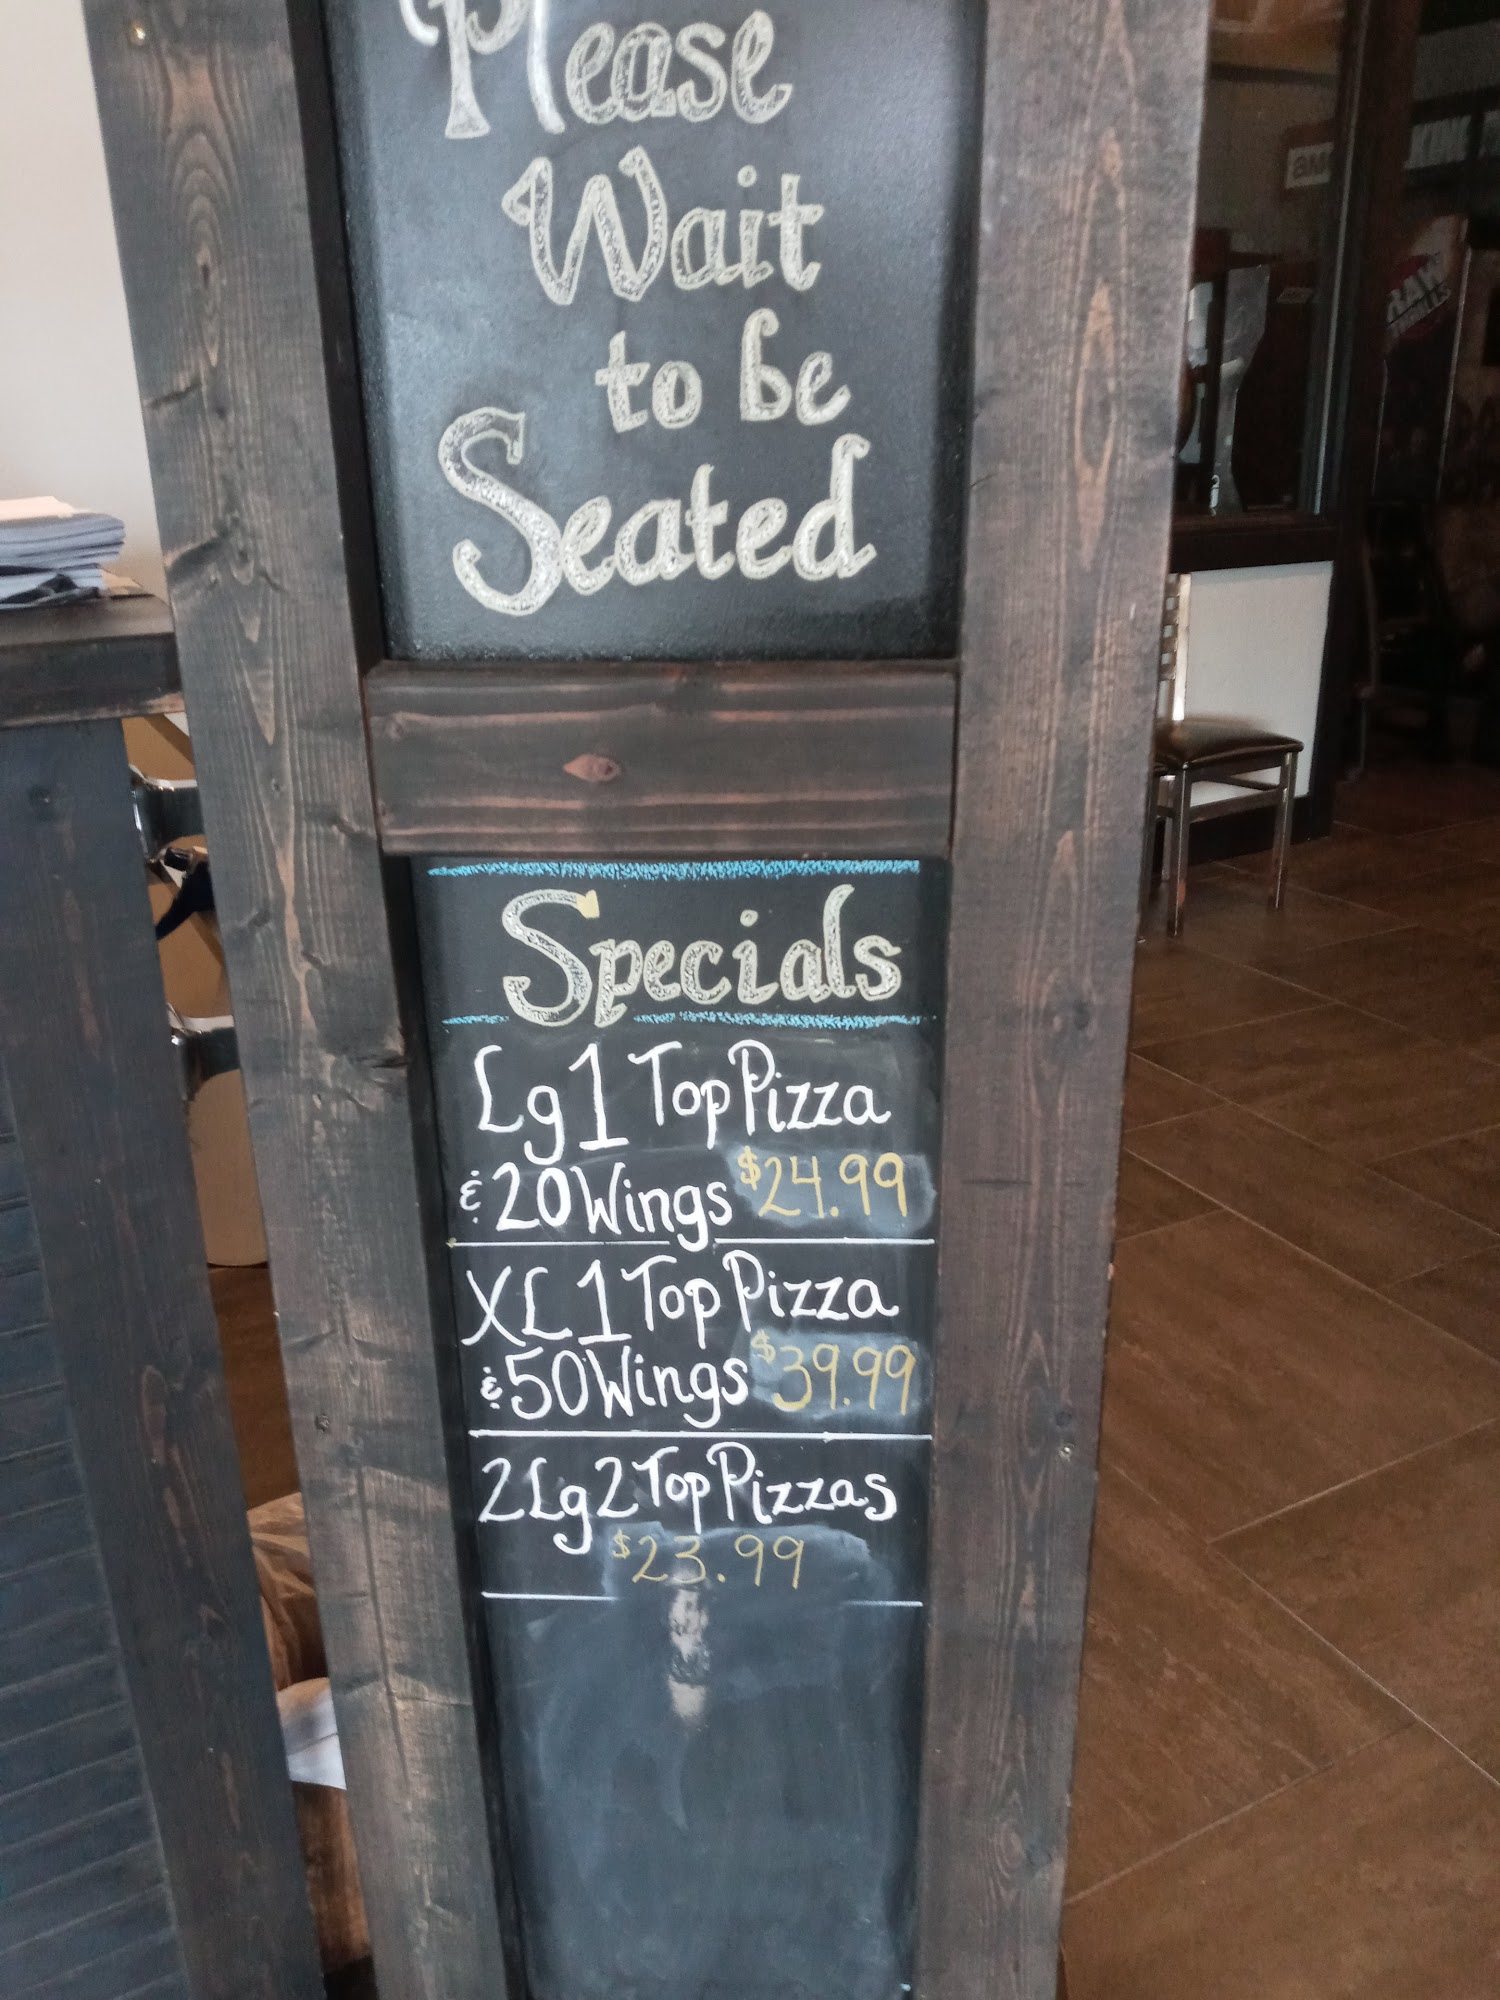 Please
Wait
to be
Seated
Specials
Lg 1 Top Pizza
& 20 Wings $24.99
XL 1 Top Pizza
& 50 Wings $39.99
2 Lg 2 Top Pizzas
$23.99
RAW